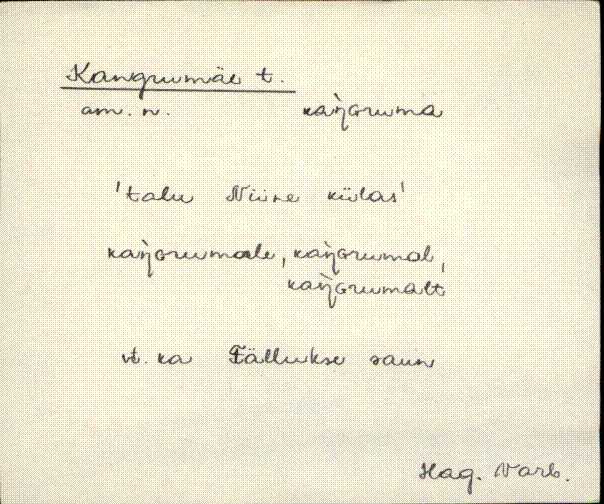 Kangrumäe t.
am. n. kaŋ̀Gruma
'talu Niine külas'
kaŋ̀Grumale, kaŋ̀Grumal,
kaŋ̀Grumalt
vt. ka Tällukse saun
Hag. Varb.